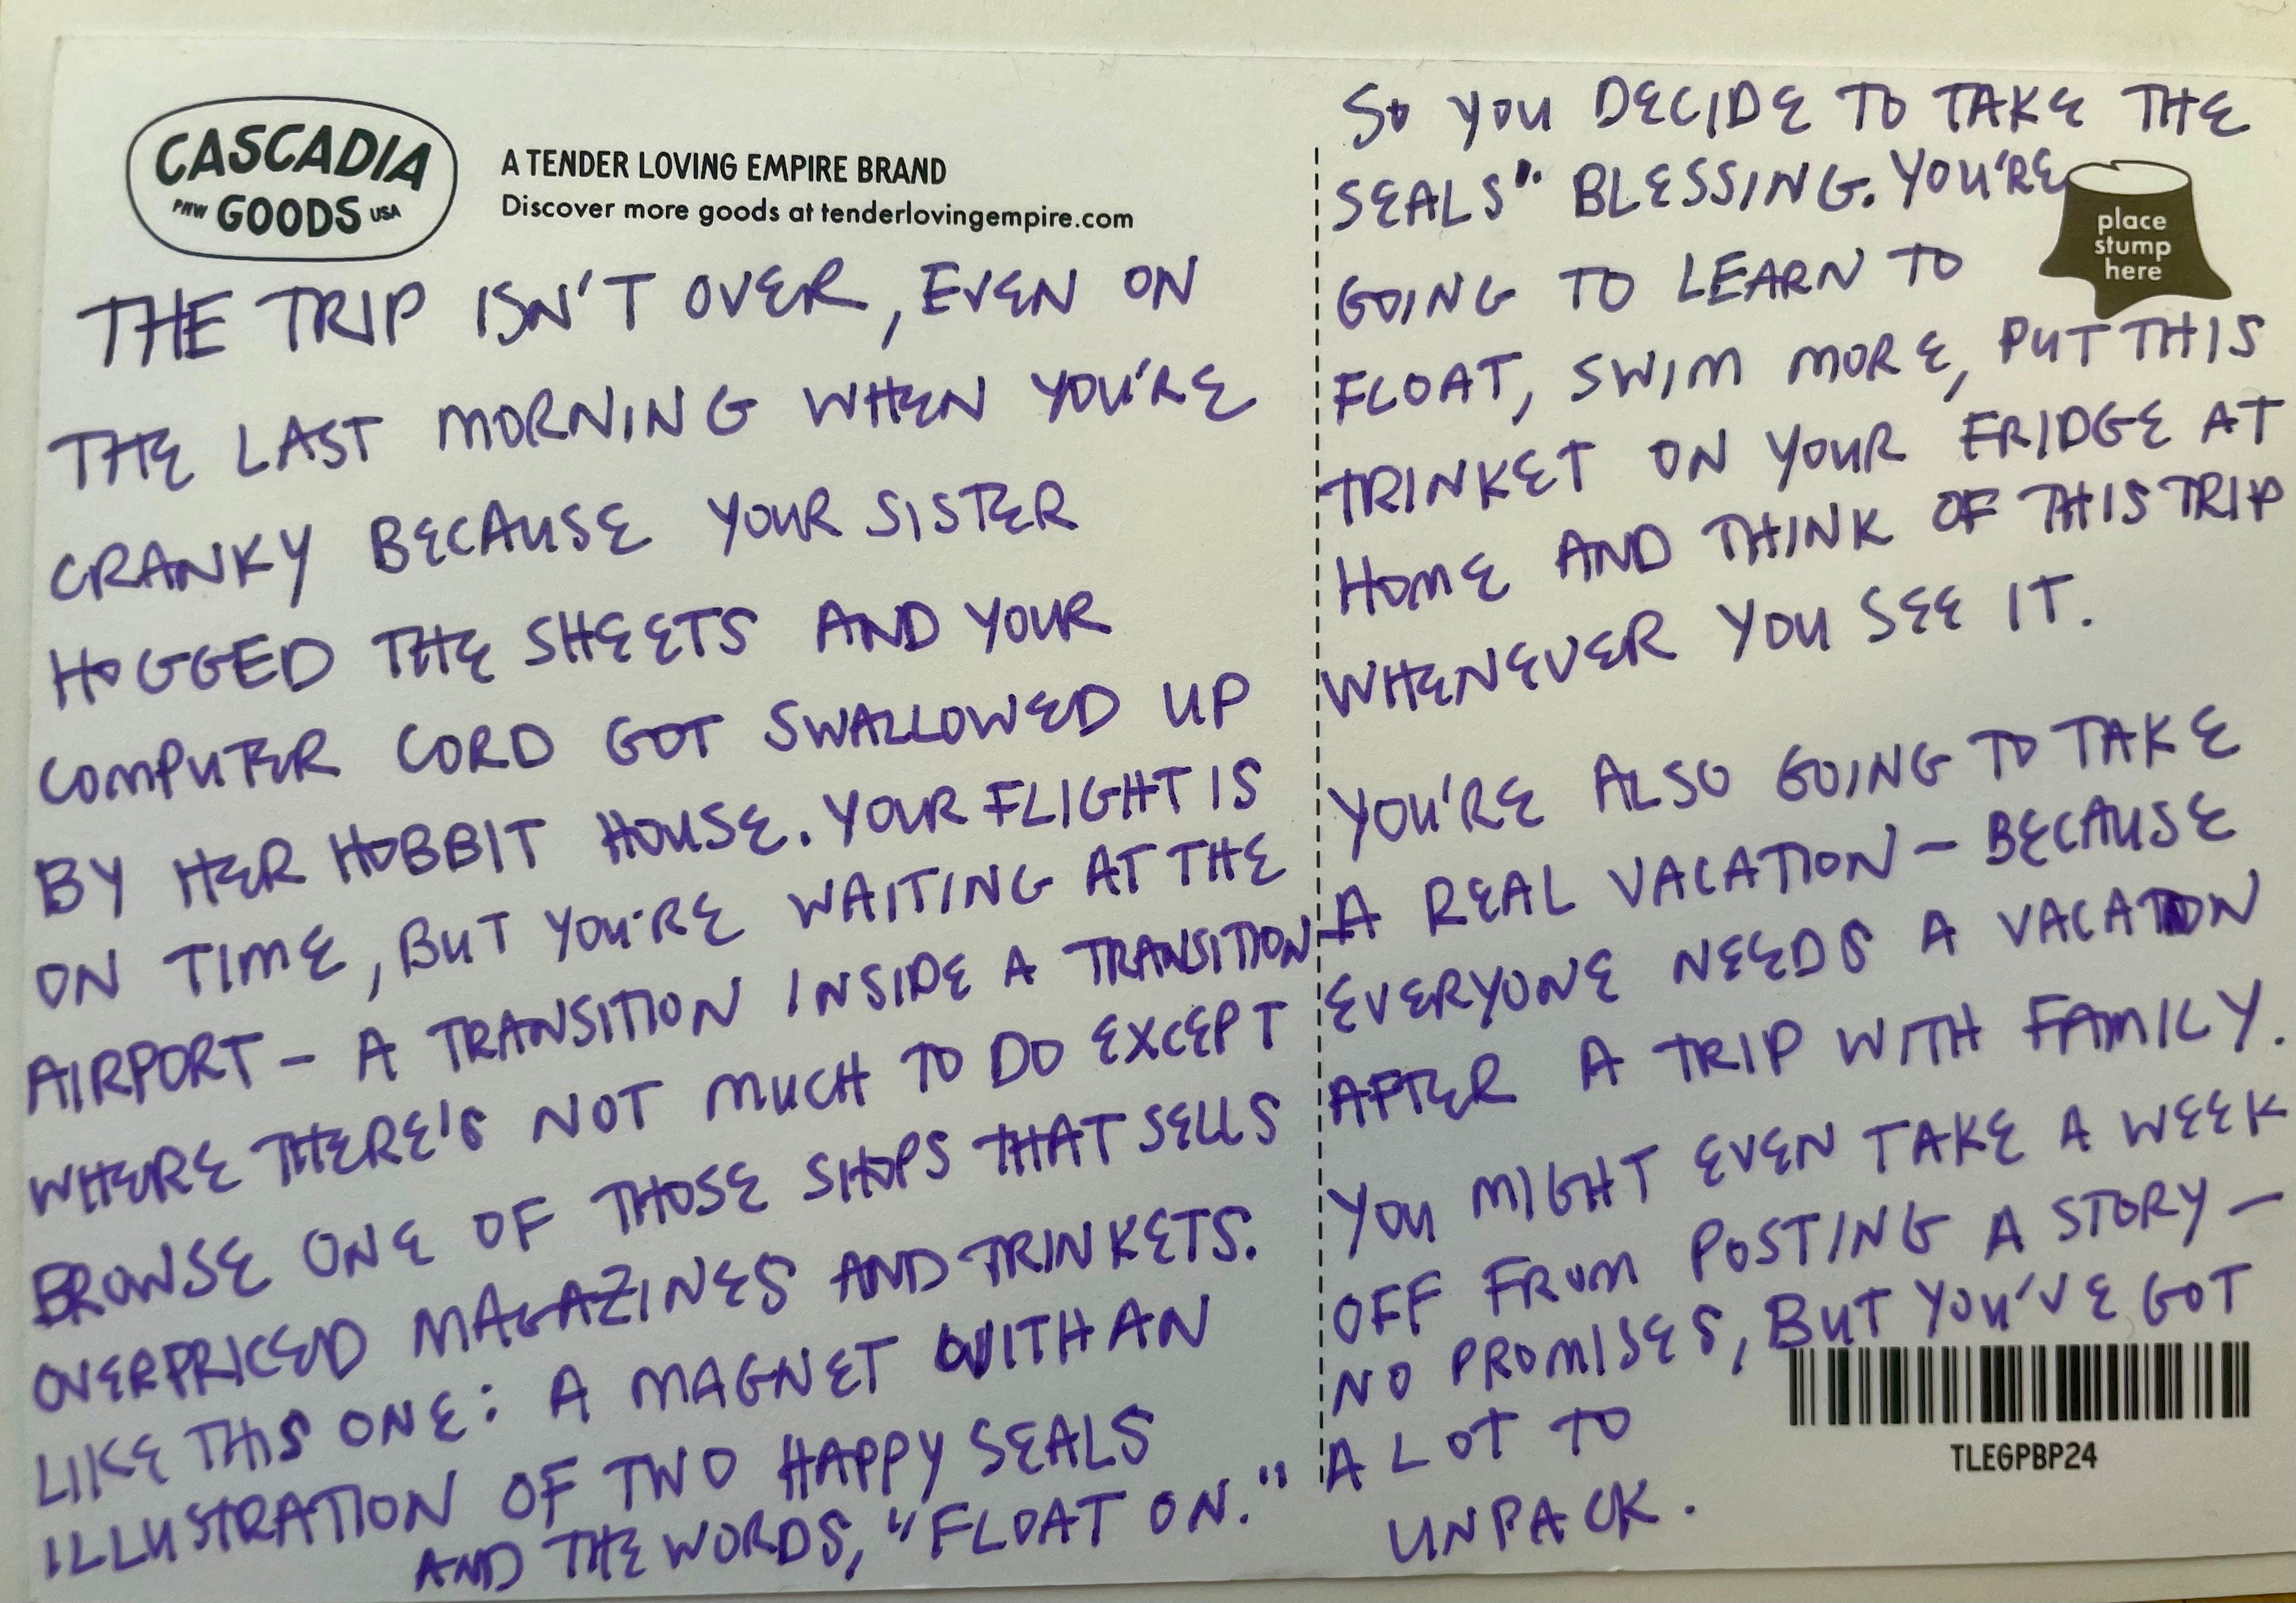 CASCADIA
PNW GOODS USA
A TENDER LOVING EMPIRE BRAND
Discover more goods at tenderlovingempire.com
THE TRIP ISN'T OVER, EVEN ON
THE LAST MORNING WHEN YOU'RE
CRANKY BECAUSE YOUR SISTER
HOGGED THE SHEETS AND YOUR
COMPUTER CORD GOT SWALLOWED UP
BY HER HOBBIT HOUSE. YOUR FLIGHT IS
ON TIME, BUT YOU'RE WAITING AT THE
AIRPORT – A TRANSITION INSIDE A TRANSITION –
WHERE THERE'S NOT MUCH TO DO EXCEPT
BROWSE ONE OF THOSE SHOPS THAT SELLS
OVERPRICED MAGAZINES AND TRINKETS.
LIKE THIS ONE: A MAGNET WITH AN
ILLUSTRATION OF TWO HAPPY SEALS
AND THE WORDS, "FLOAT ON."
SO YOU DECIDE TO TAKE THE
SEALS" BLESSING. YOU'RE
GOING TO LEARN TO
FLOAT, SWIM MORE, PUT THIS
TRINKET ON YOUR FRIDGE AT
HOME AND THINK OF THIS TRIP
WHENEVER YOU SEE IT.
YOU'RE ALSO GOING TO TAKE
A REAL VACATION – BECAUSE
EVERYONE NEEDS A VACATION
AFTER A TRIP WITH FAMILY.
YOU MIGHT EVEN TAKE A WEEK
OFF FROM POSTING A STORY –
NO PROMISES, BUT YOU'VE GOT
A LOT TO
UNPACK.
place
stump
here
TLEGPBP24